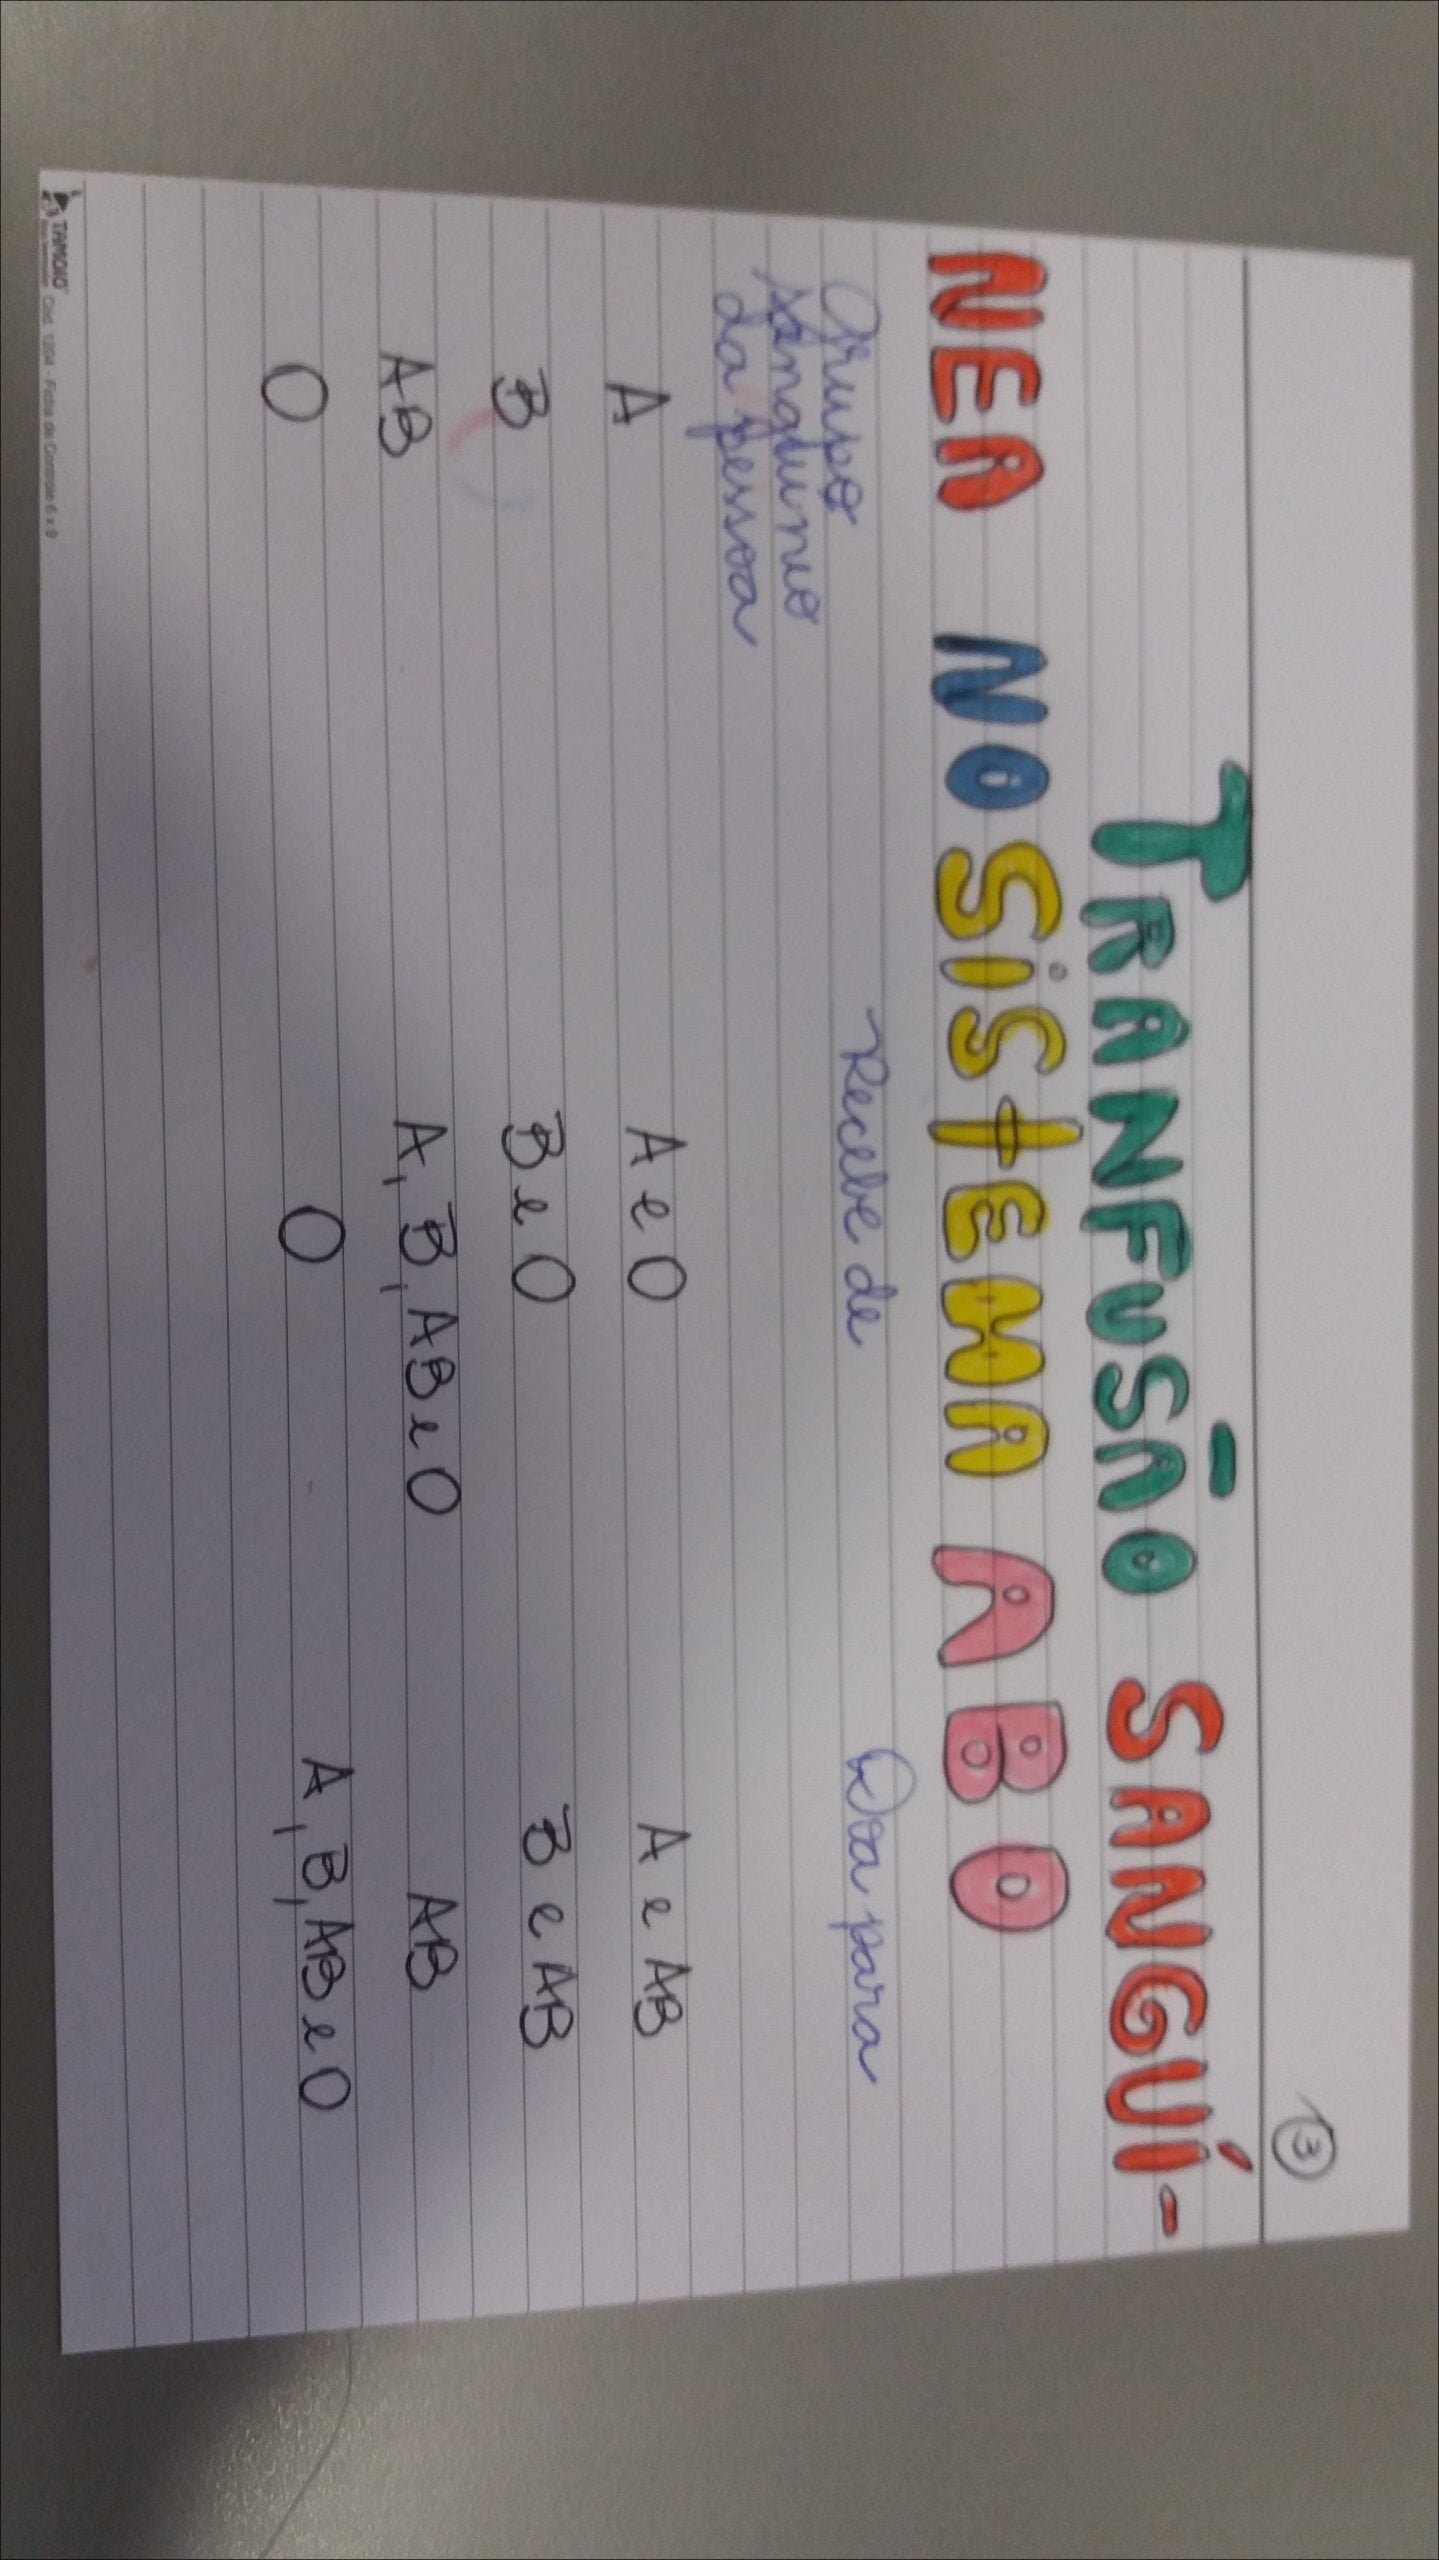 3
TRANFUSÃO SANGUÍ-
NEA NO SISTEMA ABO
Grupo Recebe de Doa para
sanguineo
da pessoa
A A e O A e AB
B B e O B e AB
AB A, B, AB e O AB
O O A, B, AB e O
TAMOIO Cód. 1204 - Ficha de Controle 6 x 9